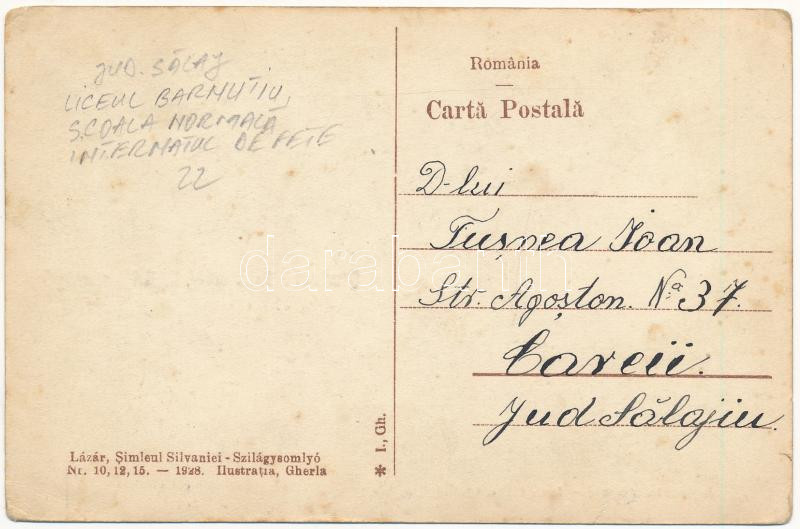 JUD. SĂLAJ
LICEUL BARNUTIU,
ȘCOALA NORMALĂ
INTERNATUL DE FETE
22
România
Cartă Postală
D-lui
Tușnea Ioan
Str. Agoston. Nª 37.
Careii.
Jud Sălajiu.
darabanth
Lázár, Șimleul Silvaniei - Szilágysomlyó
Nr. 10, 12, 15. — 1928. Ilustrația, Gherla
* I., Gh.